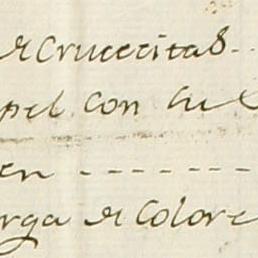 de Crucecitas..
pel con su
en - - - - - - -
rga de Colore